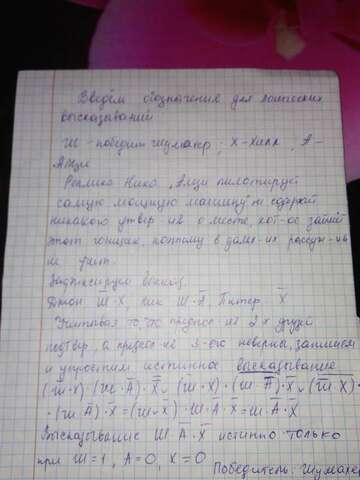 Введём обозначения для логических
высказываний
Ш - победит Шумахер; Х - Хилл, А -
Алези
Реплика Ника „Алези пилотирует
самую мощную машину" не содержит
никакого утвер-ия о месте, кот-ое займёт
этот гонщик, поэтому в даль-их рассуж-иях
не учит.
Зафиксируем
Джон Ш̅·Х, Ник Ш·А̅, Питер X̅
Учитывая то, что предпол-ия 2х друзей
подтвер, а предпол-ия 3-его неверны, запишем
и упростим истинное высказывание
Высказывание Ш·А̅·Х̅ истинно только
при Ш=1, А=0, Х=0
Победитель: Шумахер